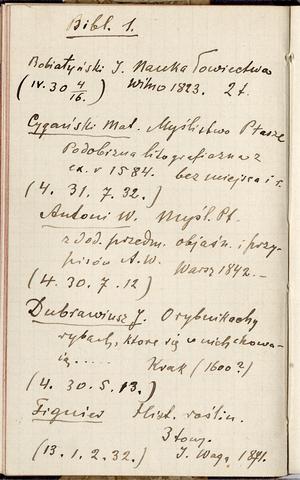 Bibl. 1.
Bobiatyński I. Nauka Łowiectwa
(IV. 30 4/16.) Wilno 1823. 2 t.
Cygański Mat. Myślistwo Ptasze
Podobizna litograficzna z
ex. r 1584. bez miejsca i r.
(4. 31. 7. 32.)
Antoni W. Myśl. Pt.
z dod. przedm. objaśn. i przy-
pisów A. W. Warsz 1842. –
(4. 30. 7. 12)
Dubrawiusz J. O rybnikach y
rybach, które się w nich chowa-
ią..... Krak (1600?)
(4. 30. 5. 13.)
Figuier Hist. roślin.
3 tomy.
(13. 1. 2. 32.) J. Waga 1871.